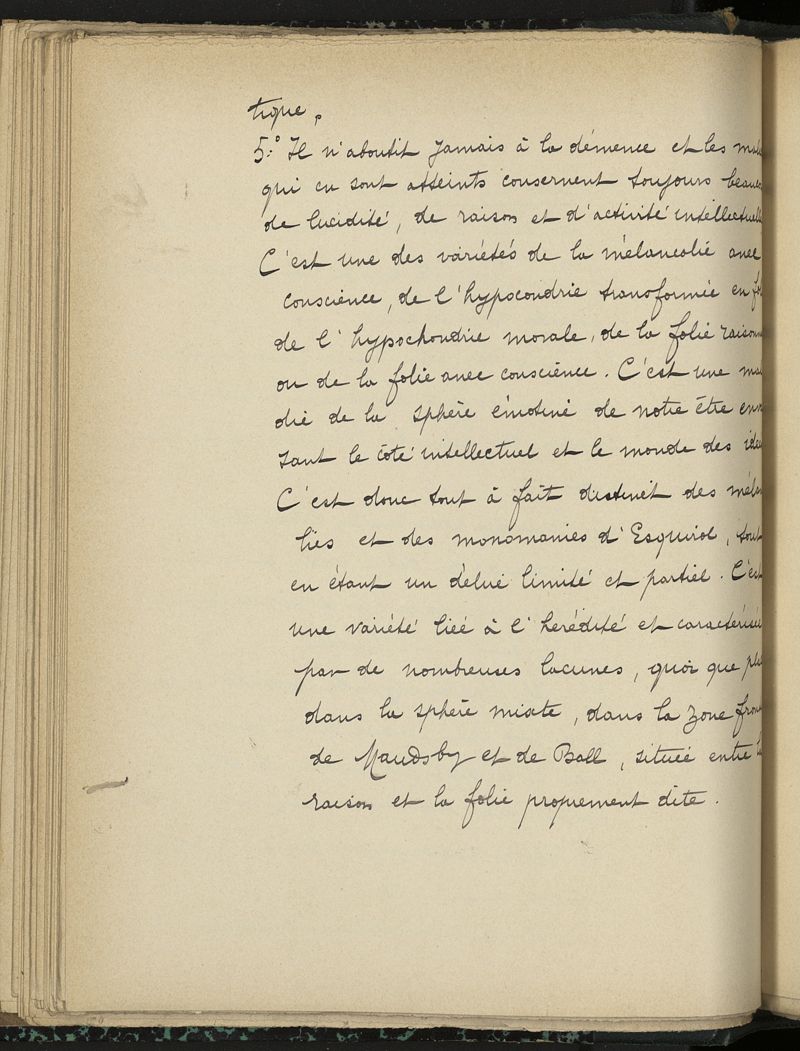 tique.
5.° Il n'aboutit jamais à la démence et les mala
qui en sont atteints conservent toujours beauco
de lucidité, de raison et d'activité intellectuelle
C'est une des variétés de la mélancolie avec
conscience, de l'hypocondrie transformée en fo
de l'hypochondrie morale, de la folie raisonn
ou de la folie avec conscience. C'est une mal
die de la sphère émotive de notre être envi
sant le côté intellectuel et le monde des idées
C'est donc tout à fait distinct des mélan
lies et des monomanies d'Esquirol, tout
en étant un délire limité et partiel. C'est
une variété liée à l'herédité et caractérisée
par de nombreuses lacunes, quoi que plac
dans la sphère mixte, dans la zone fron
de Maudsby et de Ball, située entre la
raison et la folie proprement dite.